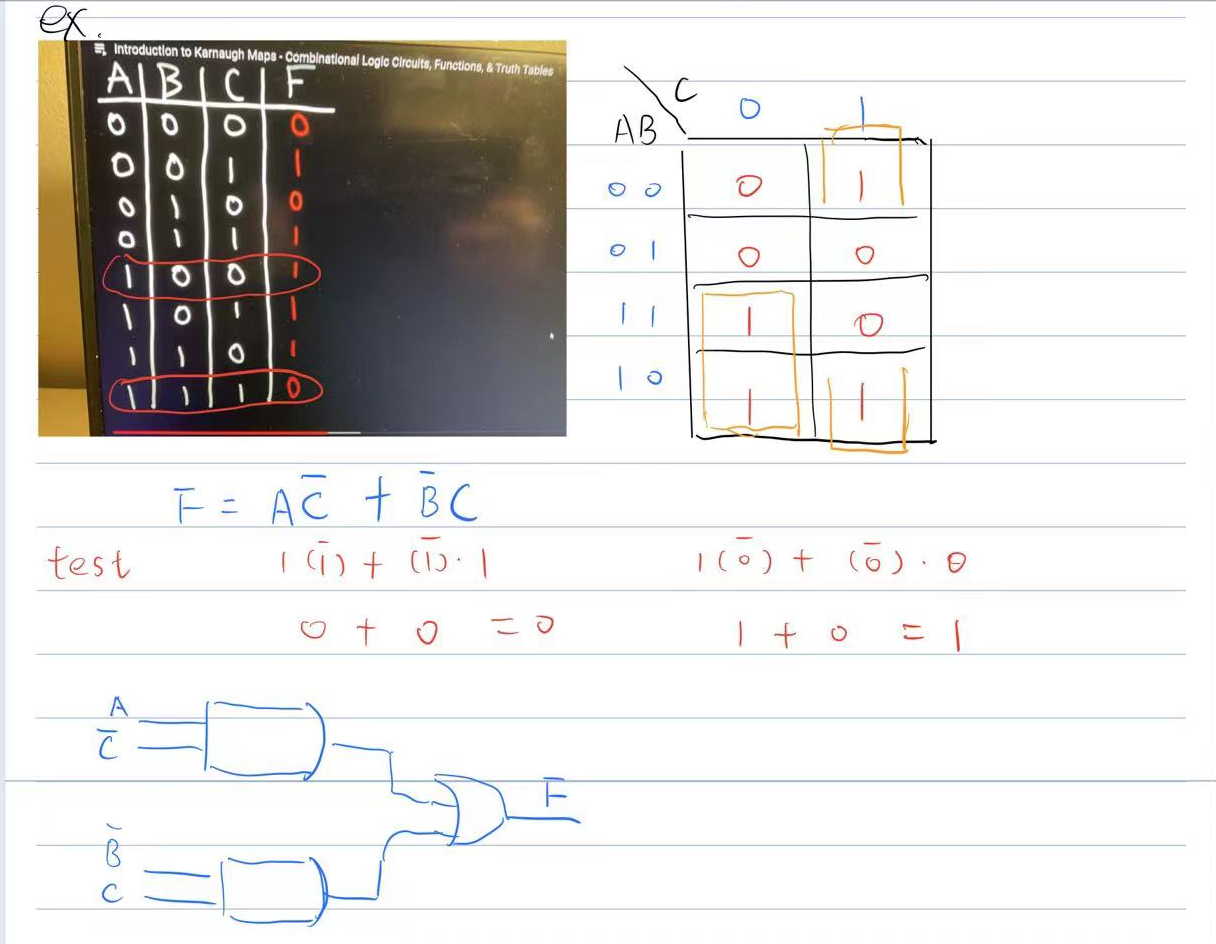 ex.
Introduction to Karnaugh Maps - Combinational Logic Circuits, Functions, & Truth Tables
A B C F
0 0 0 0
0 0 1 1
0 1 0 0
0 1 1 1
1 0 0 1
1 0 1 1
1 1 0 1
1 1 1 0
C
AB
0 1
0 0 0 1
0 1 0 0
1 1 1 0
1 0 1 1
F = AC̅ + B̅C
test 1(1̅) + (1̅)·1 1(0̅) + (0̅)·0
0 + 0 = 0 1 + 0 = 1
A
C̅
F
B̅
C